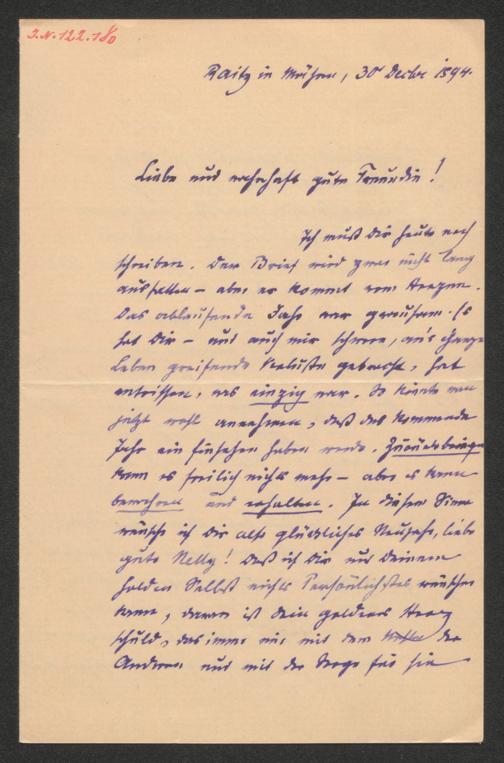 J.N. 122.180
Raitz in Mähren, 30 Decbr 1894.
Liebe und wahrhaft gute Freundin!
Ich muß Dir heute noch
schreiben. Der Brief wird zwar nicht lang
ausfallen – aber er kommt vom Herzen.
Das ablaufende Jahr war grausam. Es
hat Dir – und auch mir schwere, an's ganze
Leben greifende Verluste gebracht, hat
entrissen, was einzig war. So könnte man
jetzt wohl annehmen, daß das kommende
Jahr ein Einsehen haben werde. Zurückbringen
kann es freilich nichts mehr – aber es kann
bewahren und erhalten. In diesem Sinne
wünsche ich Dir also glückliches Neujahr, liebe
gute Nelly! Daß ich Dir und Deinem
holden Selbst nichts Persönlichstes wünschen
kann, daran ist Dein goldenes Herz
schuld, das immer nur mit dem der
Anderen und mit der Sorge für sie